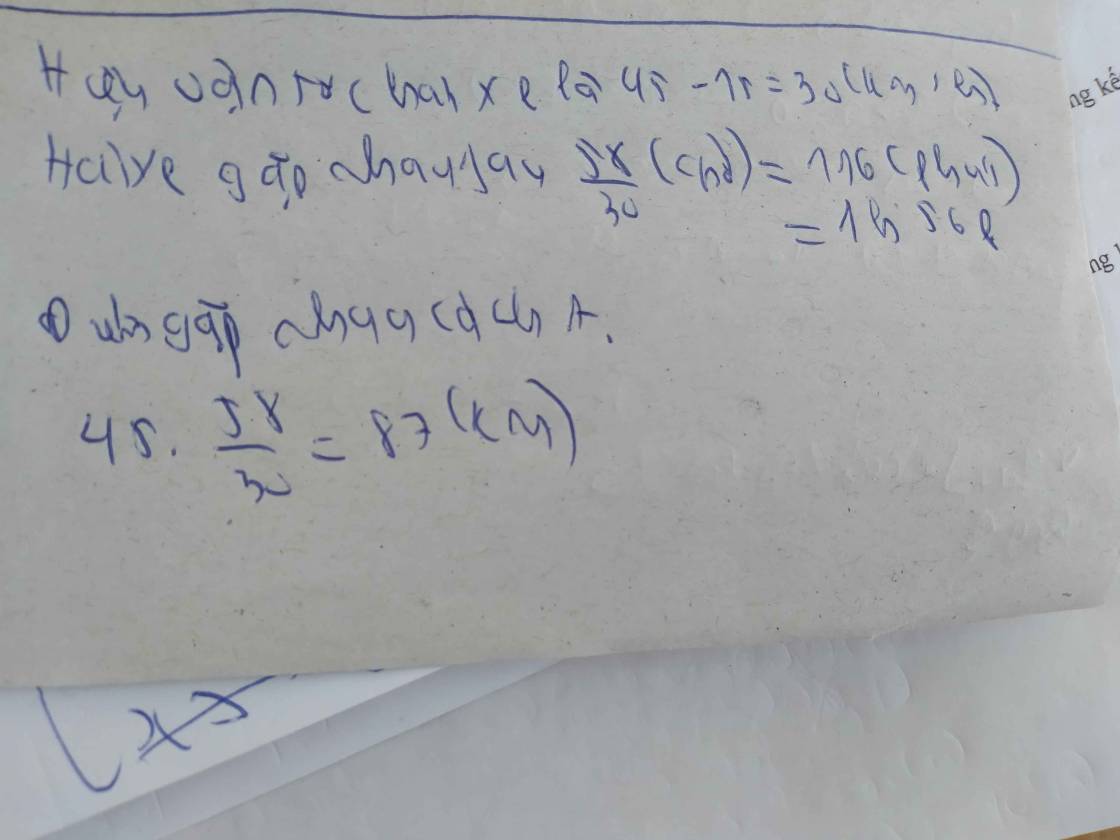 Hiệu vận tốc hai xe là 45 - 15 = 30 (km/h)
Hai xe gặp nhau sau 58/30 (giờ) = 116 (phút)
= 1h 56p
gặp nhau cách A.
45. 58/30 = 87 (km)
ng kế
ng